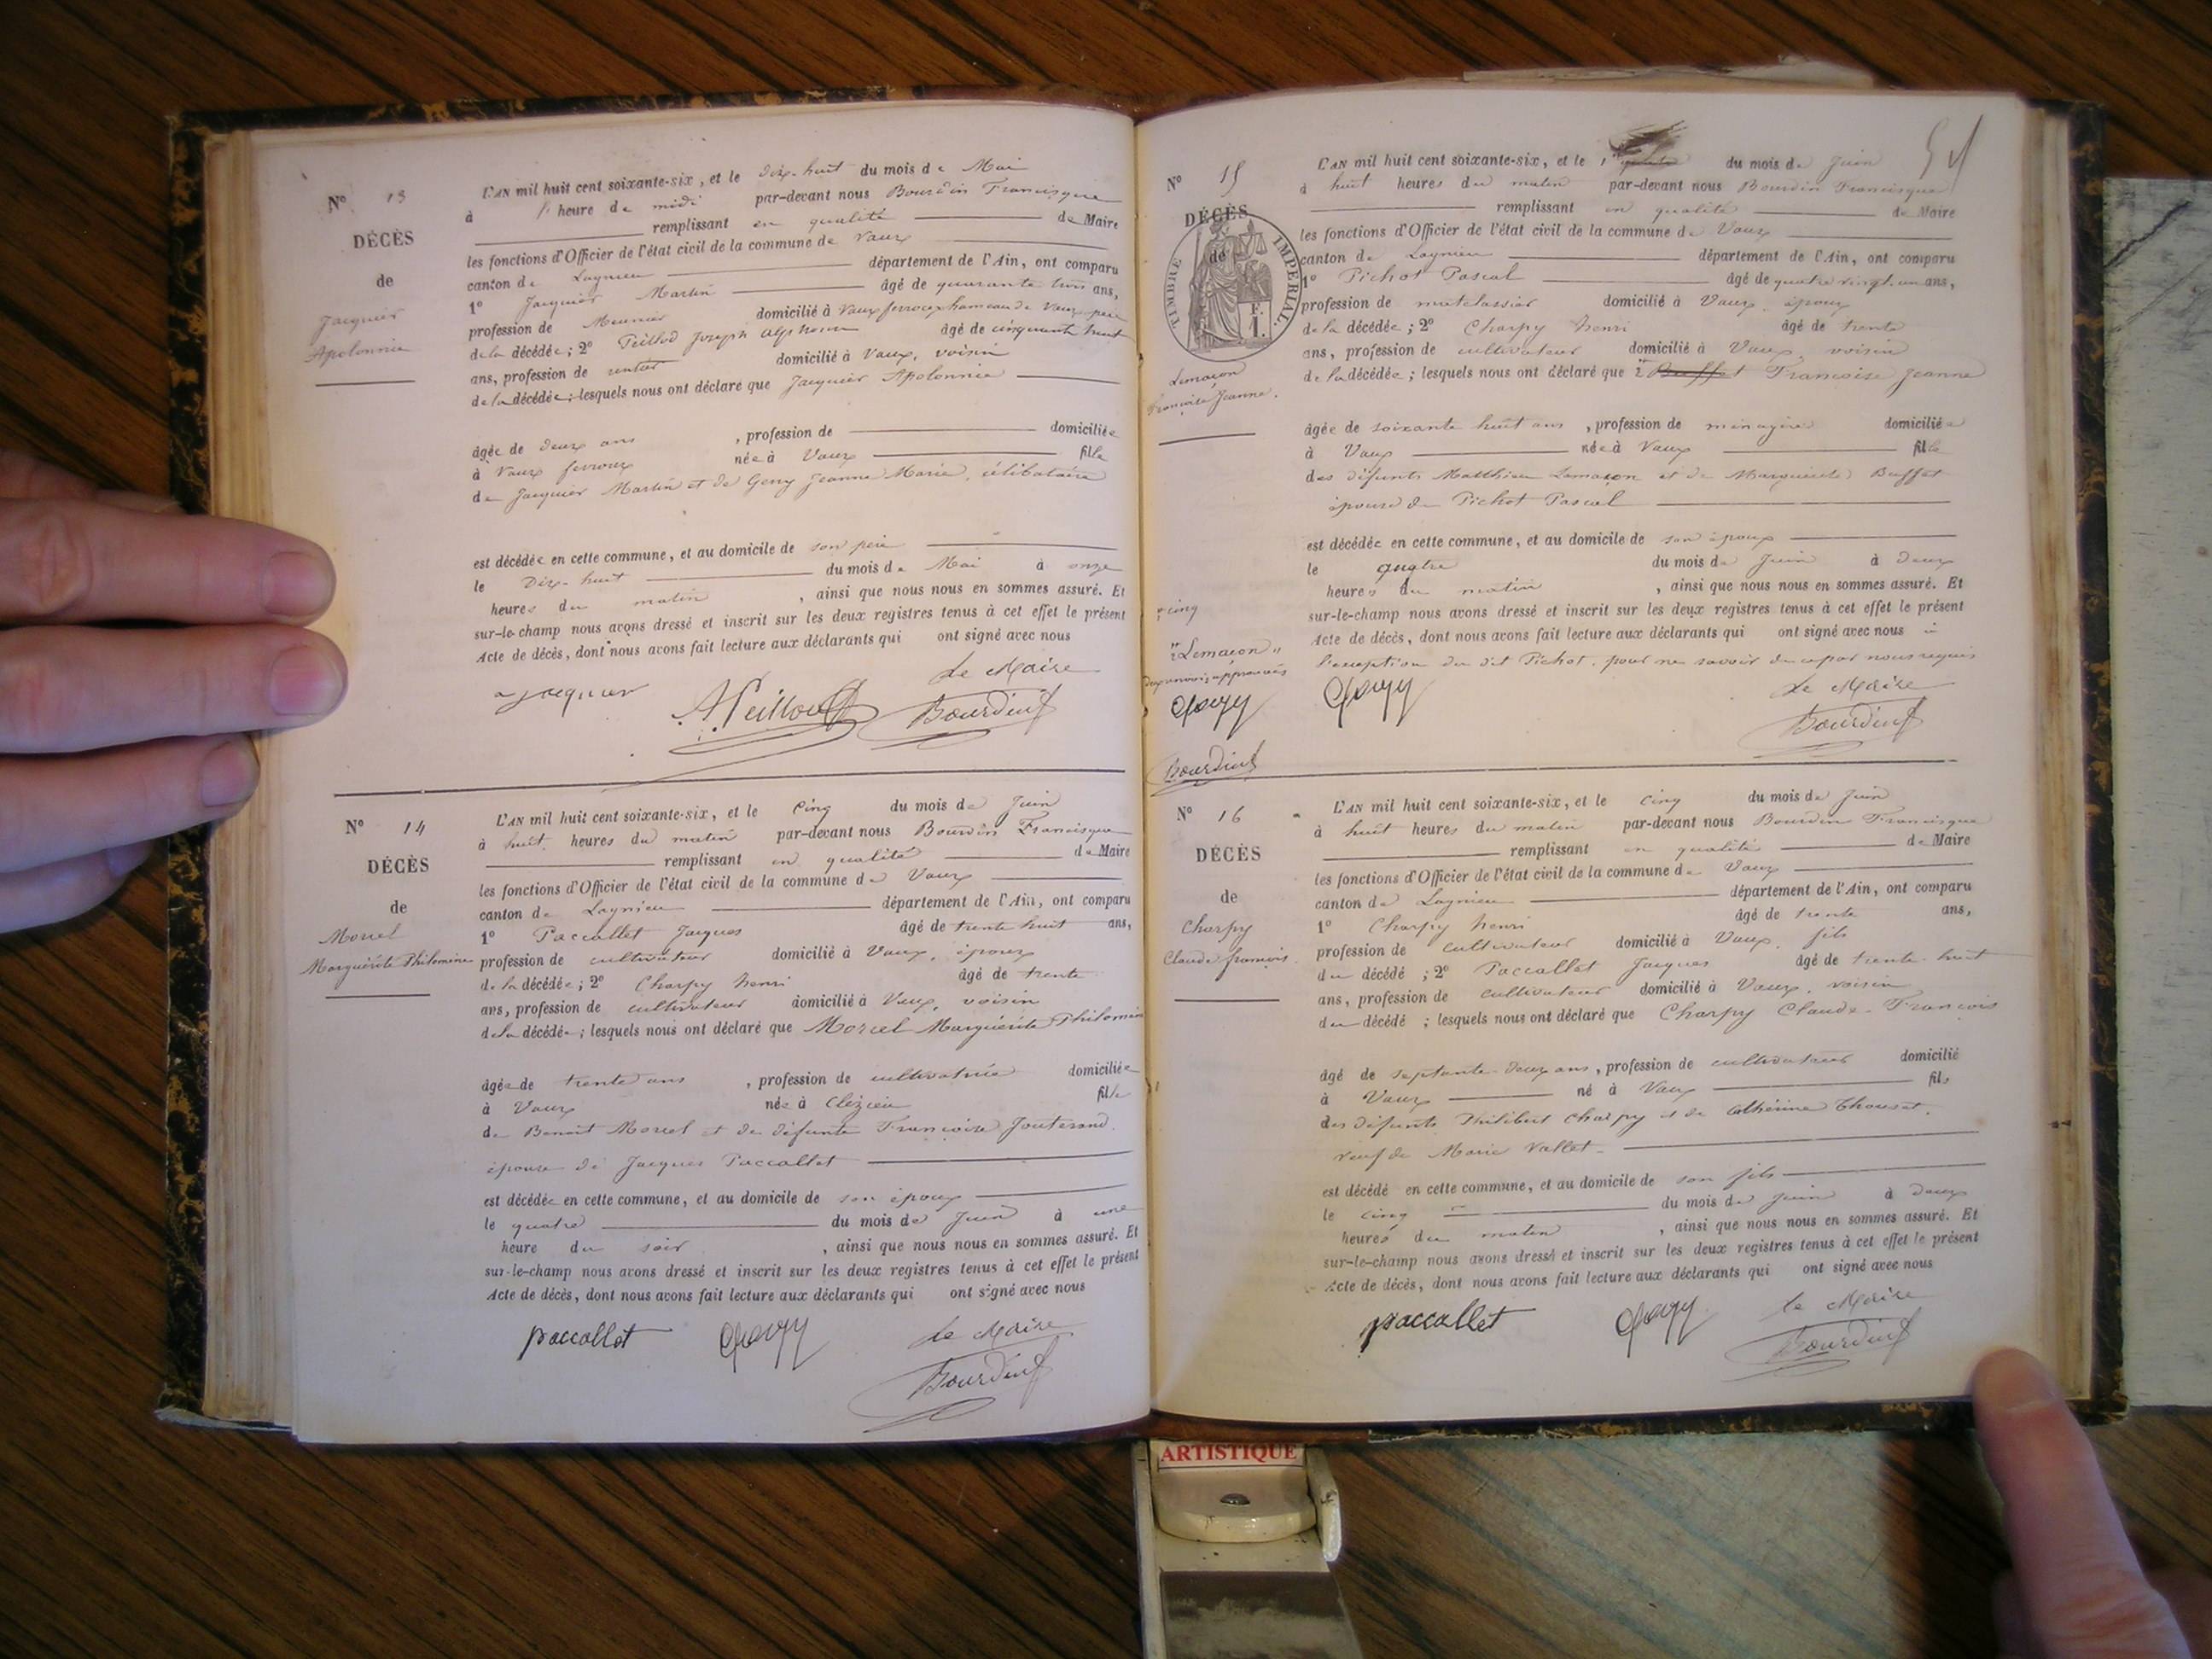 N° 13
DÉCÈS
de
Jacquier
Apolonnie
L'AN mil huit cent soixante-six, et le Dix-huit du mois de Mai
à l' heure de midi par-devant nous Bourdin Francisque
remplissant en qualité de Maire
les fonctions d'Officier de l'état civil de la commune de Vaux
canton de Lagnieu département de l'Ain, ont comparu
1° Jacquier Martin âgé de quarante trois ans,
profession de Meunier domicilié à Vaux fevroux hameau de Vaux père
de la décédée; 2° Peillod Joseph Alphonse âgé de cinquante huit
ans, profession de rentier domicilié à Vaux, voisin
de la décédée; lesquels nous ont déclaré que Jacquier Apolonnie
âgée de deux ans , profession de domiciliée
à Vaux fevroux née à Vaux fille
de Jacquier Martin et de Geny Jeanne Marie, célibataire
est décédée en cette commune, et au domicile de son père
le Dix-huit du mois de Mai à onze
heures du matin , ainsi que nous nous en sommes assuré. Et
sur-le-champ nous avons dressé et inscrit sur les deux registres tenus à cet effet le présent
Acte de décès, dont nous avons fait lecture aux déclarants qui ont signé avec nous
Le Maire
Jacquier APeillod Bourdin f
N° 14
DÉCÈS
de
Morcel
Marguérite Philomine
L'AN mil huit cent soixante-six, et le Cinq du mois de Juin
à huit heures du matin par-devant nous Bourdin Francisque
remplissant en qualité de Maire
les fonctions d'Officier de l'état civil de la commune de Vaux
canton de Lagnieu département de l'Ain, ont comparu
1° Paccallet Jacques âgé de trente huit ans,
profession de cultivateur domicilié à Vaux, époux
de la décédée; 2° Charpy henri âgé de trente
ans, profession de cultivateur domicilié à Vaux, voisin
de la décédée; lesquels nous ont déclaré que Morcel Marguérite Philomine
âgée de trente ans , profession de cultivatrice domiciliée
à Vaux née à Clézieu fille
de Benoit Morcel et de défunte Francoise Jouterand.
épouse de Jacques Paccallet
est décédée en cette commune, et au domicile de son époux
le quatre du mois de Juin à une
heure du soir , ainsi que nous nous en sommes assuré. Et
sur-le-champ nous avons dressé et inscrit sur les deux registres tenus à cet effet le présent
Acte de décès, dont nous avons fait lecture aux déclarants qui ont signé avec nous
paccallet Charpy Le Maire
Bourdin f
N° 15
DÉCÈS
de
TIMBRE IMPÉRIAL.
F. 1.
Lemaçon
Françoise Jeanne.
L'AN mil huit cent soixante-six, et le du mois de Juin
à huit heures du matin par-devant nous Bourdin Francisque
remplissant en qualité de Maire
les fonctions d'Officier de l'état civil de la commune de Vaux
canton de Lagnieu département de l'Ain, ont comparu
1° Pichot Pascal âgé de quatre vingt-un ans,
profession de matelassier domicilié à Vaux, époux
de la décédée; 2° Charpy henri âgé de trente
ans, profession de cultivateur domicilié à Vaux, voisin
de la décédée; lesquels nous ont déclaré que Buffet Françoise Jeanne
âgée de soixante huit ans , profession de ménagère domiciliée
à Vaux née à Vaux fille
des défunts Matthieu Lemaçon et de Marguerite Buffet
épouse de Pichot Pascal
est décédée en cette commune, et au domicile de son époux
le quatre du mois de Juin à deux
heures du matin , ainsi que nous nous en sommes assuré. Et
sur-le-champ nous avons dressé et inscrit sur les deux registres tenus à cet effet le présent
Acte de décès, dont nous avons fait lecture aux déclarants qui ont signé avec nous à
l'exception du dit Pichot, pour ne savoir de ce par nous requis
cinq
"Lemaçon"
deux renvois approuvés
Charpy Charpy Le Maire
Bourdin f
Bourdin f
N° 16
DÉCÈS
de
Charpy
Claude françois.
L'AN mil huit cent soixante-six, et le cinq du mois de Juin
à huit heures du matin par-devant nous Bourdin Francisque
remplissant en qualité de Maire
les fonctions d'Officier de l'état civil de la commune de Vaux
canton de Lagnieu département de l'Ain, ont comparu
1° Charpy henri âgé de trente ans,
profession de cultivateur domicilié à Vaux, fils
du décédé ; 2° Paccallet Jacques âgé de trente-huit
ans, profession de cultivateur domicilié à Vaux, voisin
du décédé ; lesquels nous ont déclaré que Charpy Claude-François
âgé de septante-deux ans, profession de cultivateur domicilié
à Vaux né à Vaux fils
des défunts Philibert Charpy et de Cathérine Thouset.
veuf de Marie Vallet.
est décédé en cette commune, et au domicile de son fils
le cinq du mois de Juin à deux
heures du matin , ainsi que nous nous en sommes assuré. Et
sur-le-champ nous avons dressé et inscrit sur les deux registres tenus à cet effet le présent
Acte de décès, dont nous avons fait lecture aux déclarants qui ont signé avec nous
paccallet Charpy Le Maire
Bourdin f
ARTISTIQUE